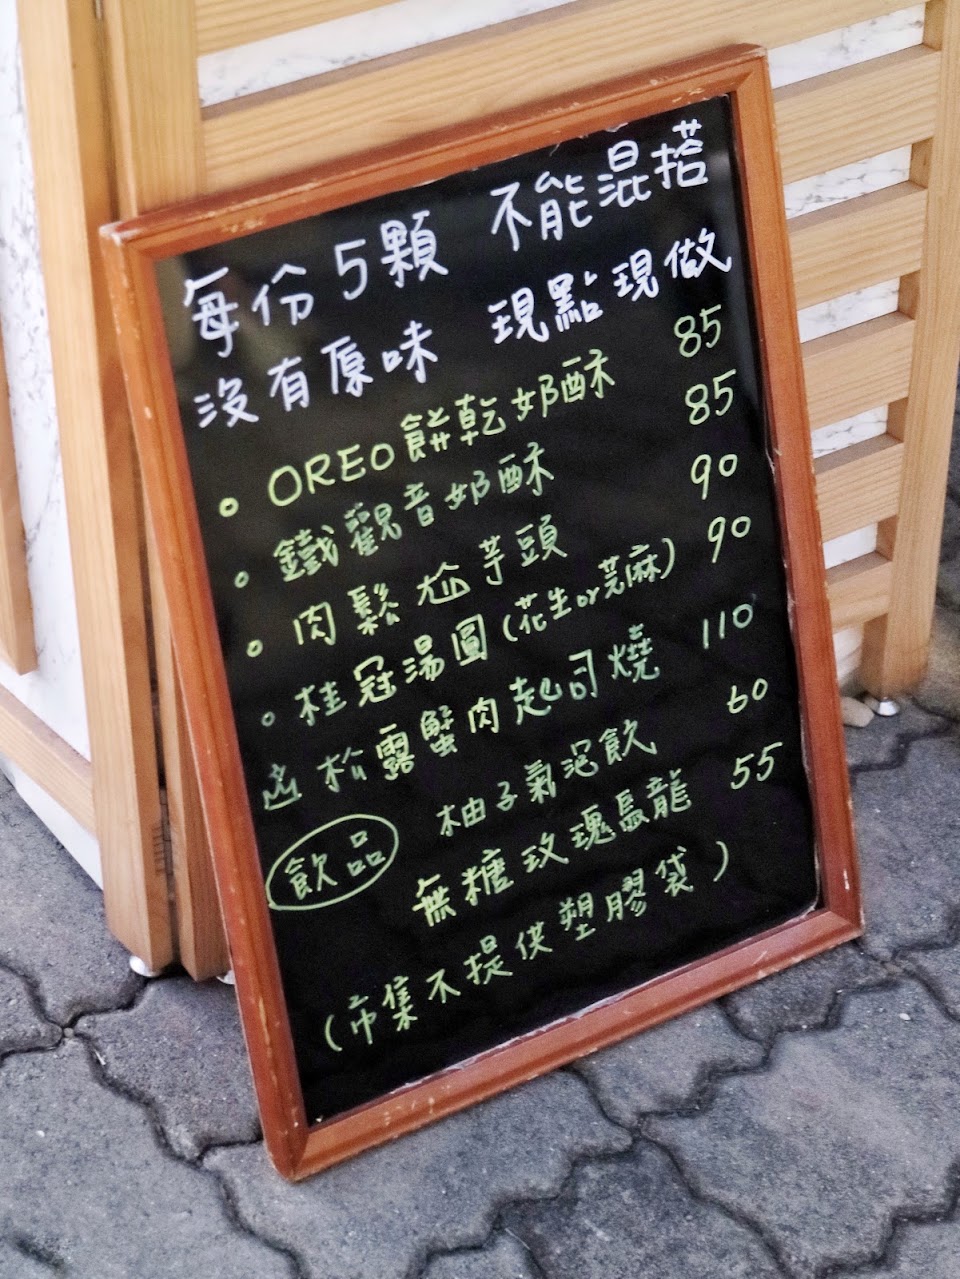 每份5顆 不能混搭
沒有原味 現點現做
OREO餅乾奶酥 85
鐵觀音奶酥 85
肉鬆尬芋頭 90
桂冠湯圓(花生or芝麻) 90
松露蟹肉起司燒 110
飲品 柚子氣泡飲 60
無糖玫瑰烏龍 55
(市集不提供塑膠袋)